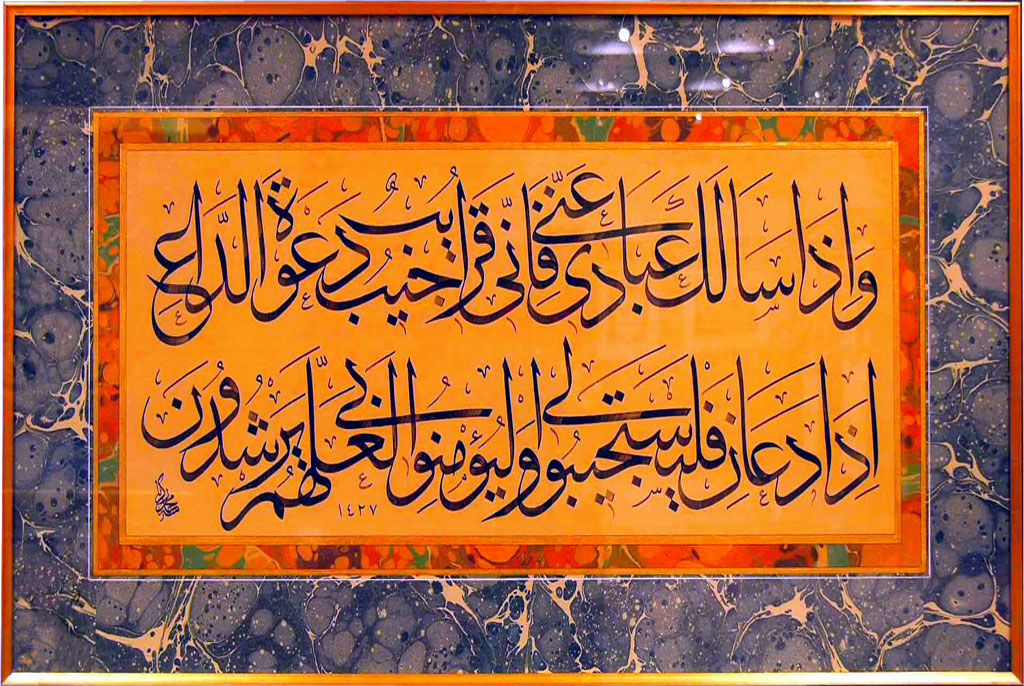 وَاِذَا سَاَلَكَ عِبَادِى عَنِّى فَاِنِّى قَرِيبٌ اُجِيبُ دَعْوَةَ الدَّاعِ
اِذَا دَعَانِ فَلْيَسْتَجِيبُوا لِى وَلْيُؤْمِنُوا بِى لَعَلَّهُمْ يَرْشُدُونَ
١٤٢٧